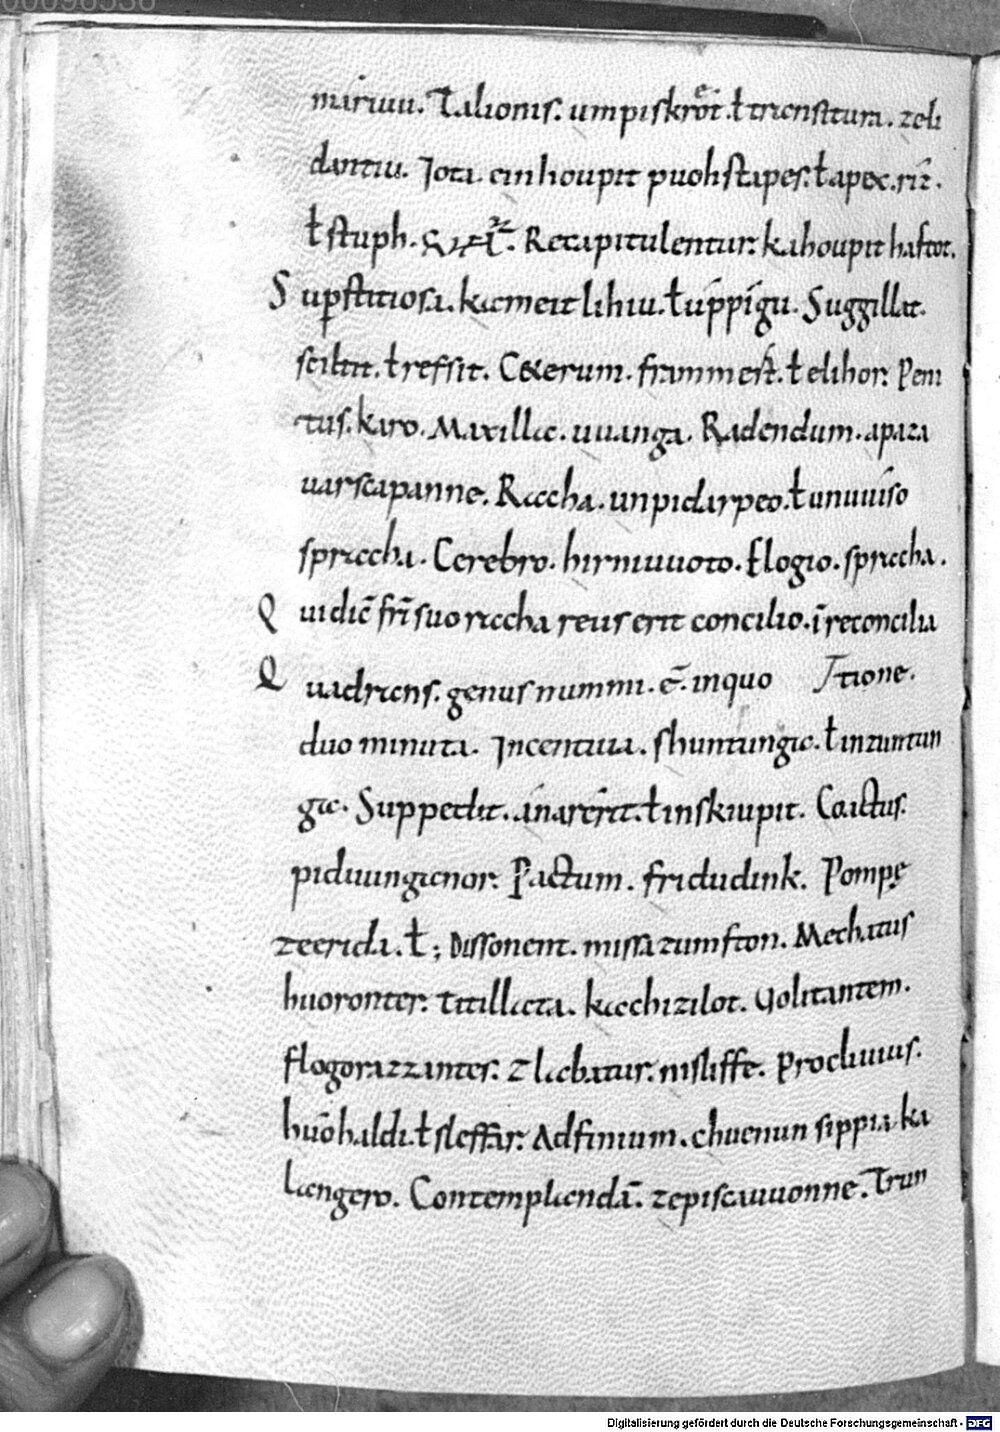 mariuu. Talionis. umpiskroͤt. ɫ triensttura. zeli
dantiu. Jota. einhoupit puohstapes. ɫ apex. riz.
ɫ stuph. Recapitulentur. kahoupit haftot.
Suꝑstitiosa. kaemeitlihiu. ɫ úppígu. Suggillat.
sciltit. ɫ refsit. Ceterum. frammert. ɫ elihor. Peni
tus. karo. Maxillae. uuanga. Radendum. apaza
uarscapanne. Raccha. unpidarpeo. ɫ unuuiso
spraecha. Cerebro. hirniuuoto. Elogio. spraecha.
Qui dic̄ fr̄i suo raccha reus erit concilio. ī reconcilia
Quadrens. genus nummi. ē. in quo tione.
duo minuta. Jncentiua. shuntungic. ɫ inzuntun
gic. Suppedit. ánarérit. ɫ inskiupit. Coactus.
piduungenor. Pactum. fridudink. Pompę
zeerida. ɫ; Dissonent. missazumfton. Mechatus
huoronter. Titillata. kaechizilot. Uolitantem.
flogorazzantes. Elabatur. nisliffe. Procliuius.
huōhaldi. ɫ sleffar. Adfinium. chuenun sippia ka
laengero. Contemplandā. zepiscauuonne. Trun
Digitalisierung gefördert durch die Deutsche Forschungsgemeinschaft - DFG